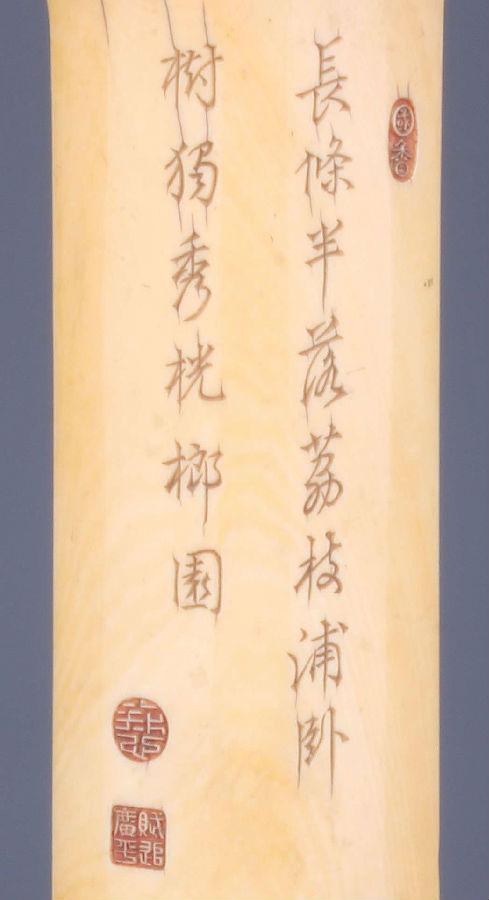 香
長條半落荔枝浦卧
樹獨秀桄榔園